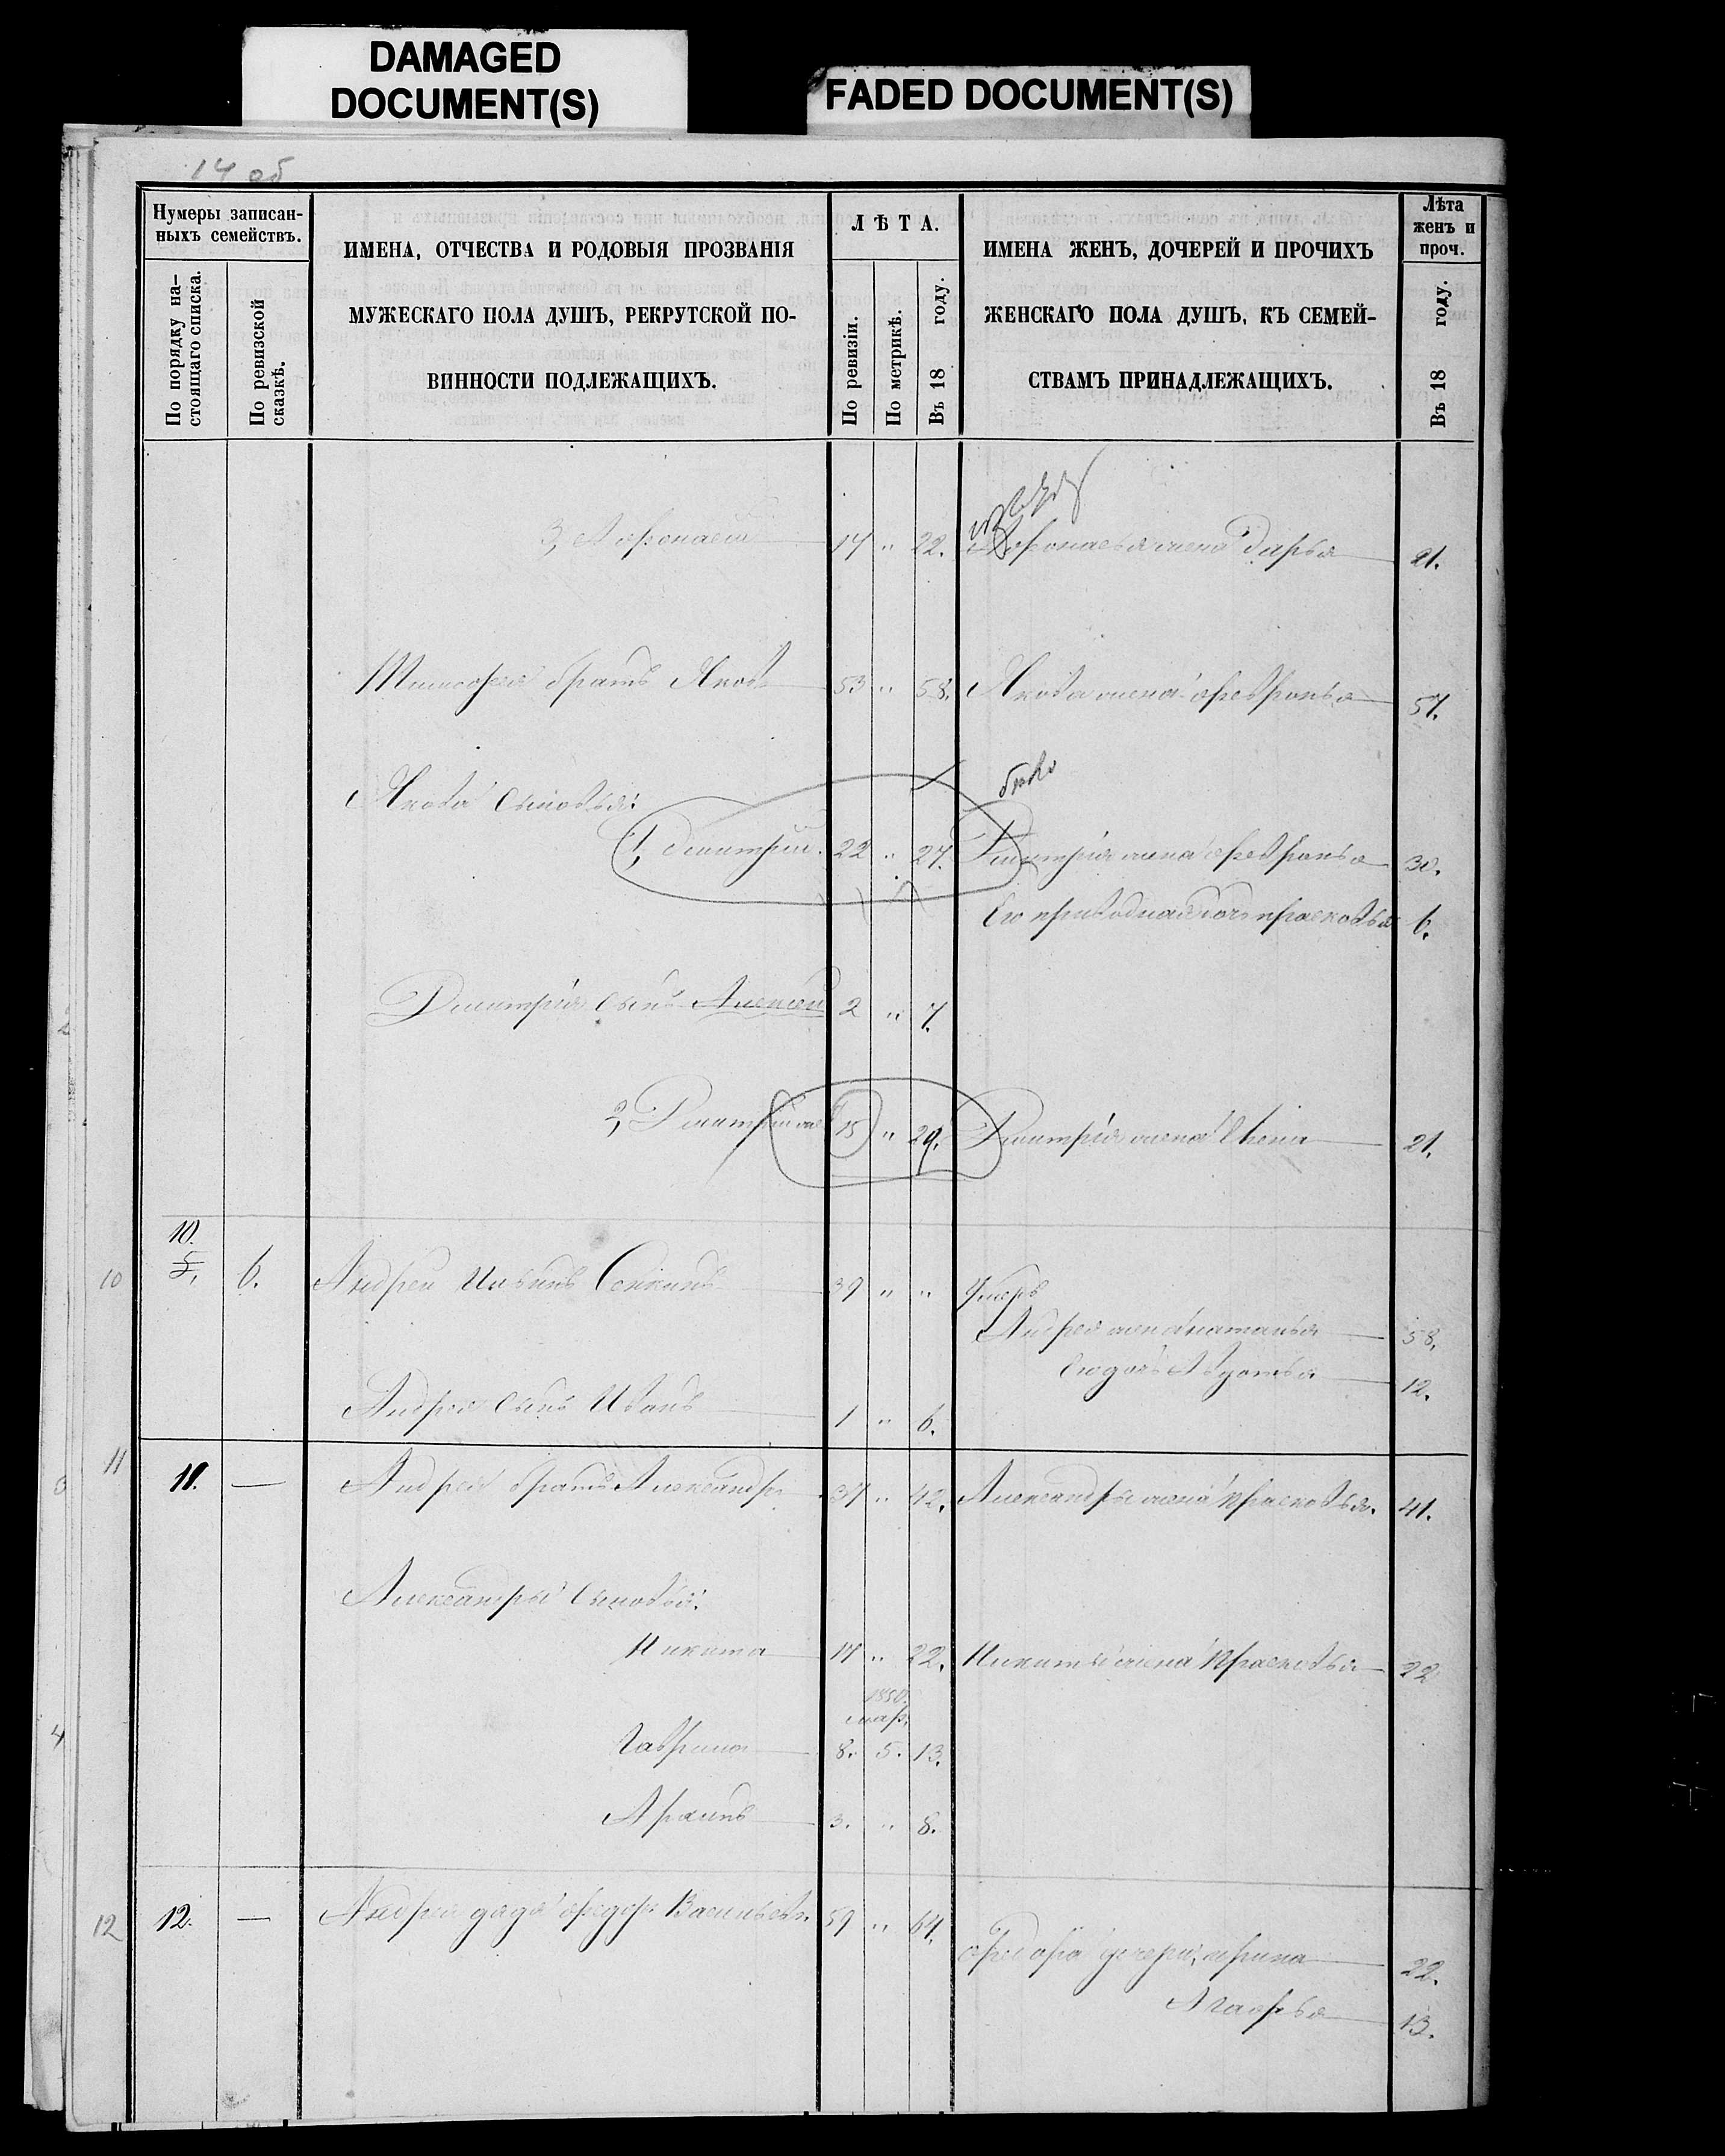 DAMAGED
DOCUMENT(S)
FADED DOCUMENT(S)
14 об
Нумеры записан-
ныхъ семействъ.
По порядку на-
стоящаго списка.
По ревизской
сказкѣ.
ИМЕНА, ОТЧЕСТВА И РОДОВЫЯ ПРОЗВАНІЯ
МУЖЕСКАГО ПОЛА ДУШЪ, РЕКРУТСКОЙ ПО-
ВИННОСТИ ПОДЛЕЖАЩИХЪ.
ЛѢТА.
По ревизіи.
По метрикѣ.
Въ 18 году.
ИМЕНА ЖЕНЪ, ДОЧЕРЕЙ И ПРОЧИХЪ
ЖЕНСКАГО ПОЛА ДУШЪ, КЪ СЕМЕЙ-
СТВАМЪ ПРИНАДЛЕЖАЩИХЪ.
Лѣта
женъ и
проч.
Въ 18 году.
3, Афонасій 17 " 22. Афонасья жена Дарья 21.
Тимофея братъ Яковъ 53 " 58. Якова жена Февронья 57.
Якова сыновья:
1, Дмитрій. 22 " 27. Дмитрія жена Февронья 30.
Ею приводная дочь Прасковья 6.
Дмитрія сынъ Алексѣй 2 " 7.
2, Дмитрій 15 " 20. Дмитрія жена 21.
10 10. 5, 6. Андрей Ильинъ Сенкинъ 39 " " Умеръ
Андрея жена Наталья 58,
Его дочь Авдотья 12.
Андрея сынъ Иванъ 1 " 6.
11 11. — Андрея братъ Александръ 37 " 42. Александры жена Прасковья. 41.
Александры сыновья:
Никита 17 " 22. Никиты жена Прасковья 22
1850.
мар.
Гаврила 8. 5. 13.
3. " 8.
12 12. — Андрея дядя Федоръ Васильевъ. 59 " 64.
Федора дочери, Арина 22.
Агафья 13.